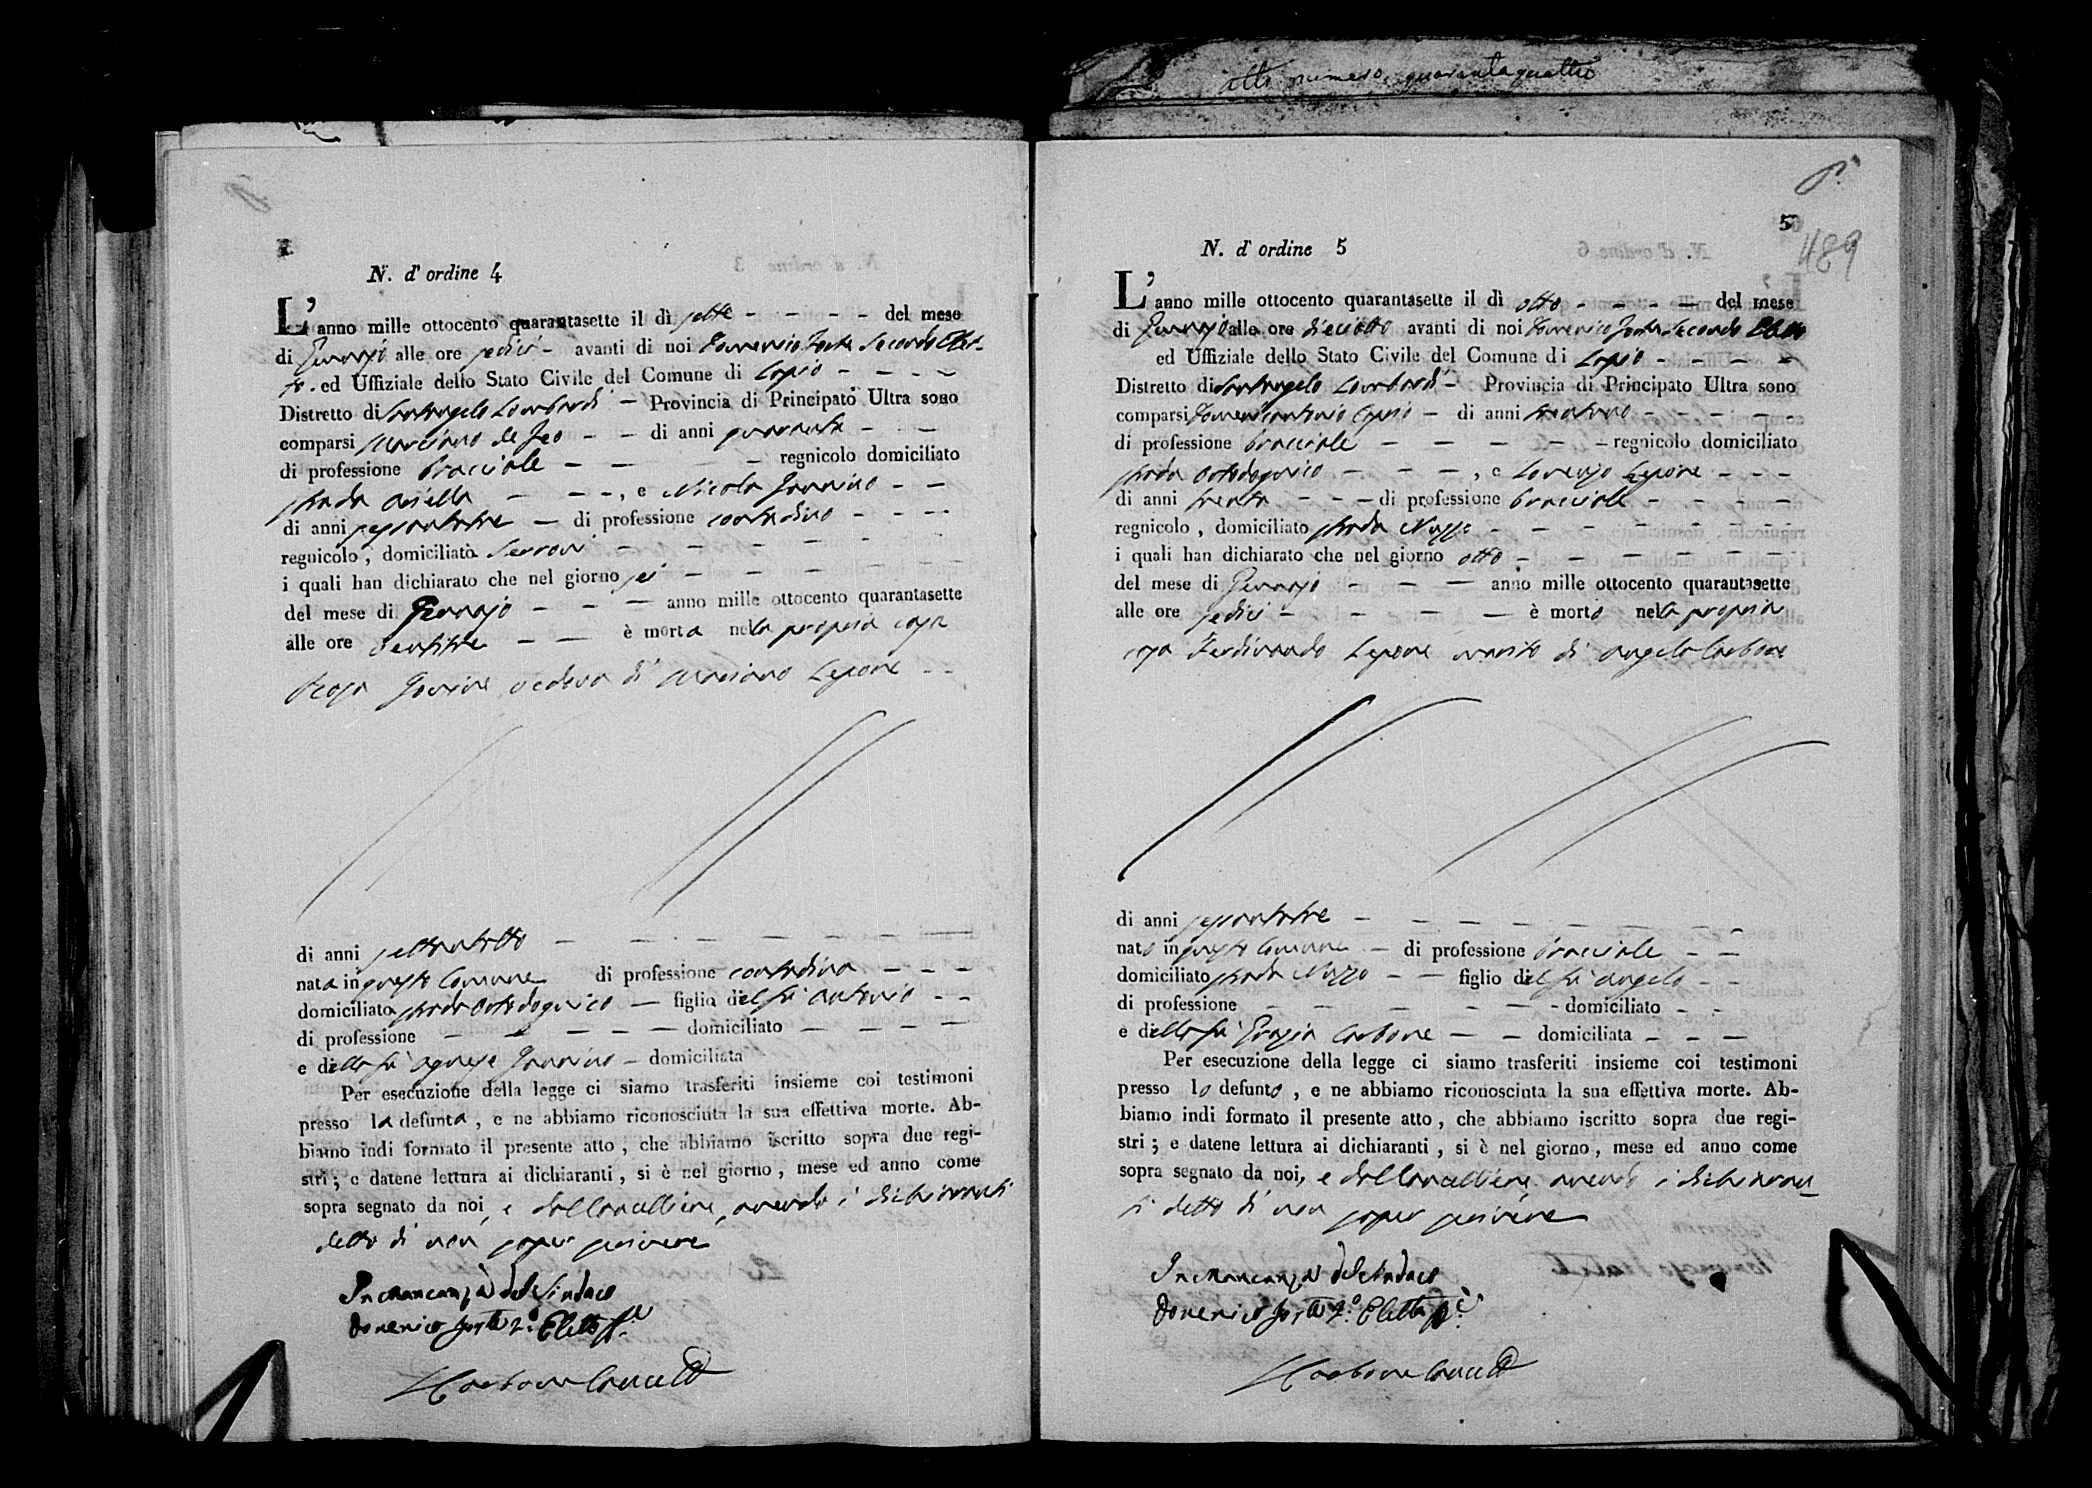 atto numero quarantaquattro
N. d' ordine 4
L' anno mille ottocento quarantasette il dì sette - - - - del mese
di Gennajo alle ore sedici - avanti di noi Domenico Forte Secondo Elet-
to. ed Uffiziale dello Stato Civile del Comune di Lapio - - - -
Distretto di Santangelo Lombardi - Provincia di Principato Ultra sono
comparsi Marciano de Feo - - di anni quaranta - - -
di professione bracciale - - - regnicolo domiciliato
strada Ariella - - - , e Nicola - -
di anni sessantatre - di professione contadino - - - -
regnicolo , domiciliato - - - - - -
i quali han dichiarato che nel giorno sei - - - - - -
del mese di Gennajo - - - anno mille ottocento quarantasette
alle ore ventitre - - è morta nella propria casa
Rosa vedova di Marciano Lepore - -
di anni settantotto - - - - - - - -
nata in questo Comune di professione contadina - - -
domiciliato strada - figlia del fù Antonio - -
di professione - - - - - - domiciliato - - - -
e della fù Agnese - domiciliata
Per esecuzione della legge ci siamo trasferiti insieme coi testimoni
presso la defunta , e ne abbiamo riconosciuta la sua effettiva morte. Ab-
biamo indi formato il presente atto , che abbiamo iscritto sopra due regi-
stri ; e datene lettura ai dichiaranti , si è nel giorno , mese ed anno come
sopra segnato da noi, e dal Cancelliere, avendo i dichiaranti
detto di non saper scrivere
In mancanza del Sindaco
Domenico Forte 2.° Eletto
Carbone Canc
5
489
N. d' ordine 5
L' anno mille ottocento quarantasette il dì otto - - - - del mese
di Gennajo alle ore dieciotto avanti di noi Domenico Forte Secondo Eletto
ed Uffiziale dello Stato Civile del Comune di Lapio - - - -
Distretto di Santangelo Lombardi - Provincia di Principato Ultra sono
comparsi Domenicantonio - di anni trentuno - - - - -
di professione bracciale - - - - - regnicolo domiciliato
strada - - - , e Lorenzo Lepore - - -
di anni trenta - - - di professione bracciale - - - -
regnicolo , domiciliato strada Nuzzo - - - - - - -
i quali han dichiarato che nel giorno otto - - - - - -
del mese di Gennajo - - - anno mille ottocento quarantasette
alle ore sedici - - - - - è morto nella propria
casa Ferdinando Lepore marito di Angela Carbone
di anni sessantatre - - - - - - -
nato in questo Comune - di professione bracciale - -
domiciliato strada Nuzzo - - figlio del fù Angelo - -
di professione - - - - - - domiciliato - -
e della fù Grazia Carbone - - domiciliata - - -
Per esecuzione della legge ci siamo trasferiti insieme coi testimoni
presso lo defunto , e ne abbiamo riconosciuta la sua effettiva morte. Ab-
biamo indi formato il presente atto , che abbiamo iscritto sopra due regi-
stri ; e datene lettura ai dichiaranti , si è nel giorno , mese ed anno come
sopra segnato da noi, e dal Cancelliere avendo i dichiaran-
ti detto di non saper scrivere
In mancanza del Sindaco
Domenico Forte 2.° Eletto
Carbone Canc